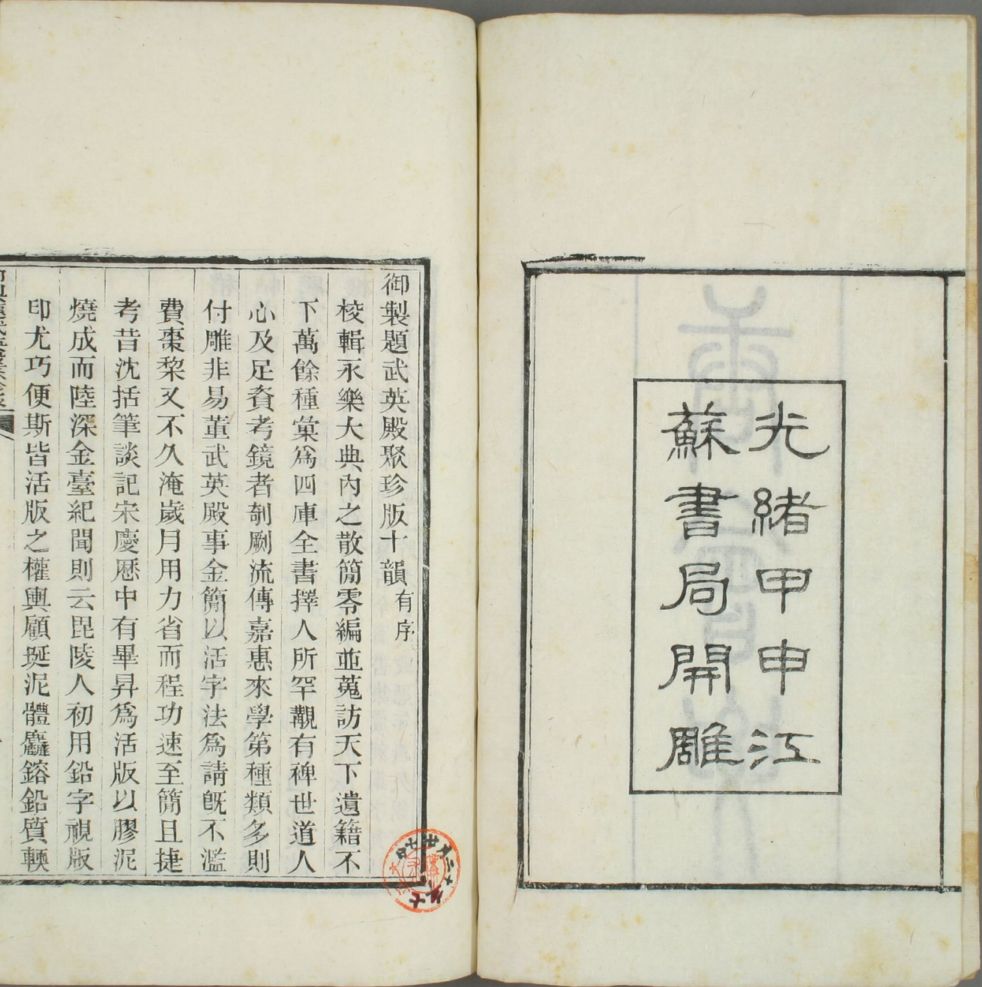 光緒甲申江
蘇書局開雕
御製題武英殿聚珍版十韻有序
校輯永樂大典內之散簡零編並蒐訪天下遺籍不
下萬餘種彙爲四庫全書擇人所罕觀有裨世道人
心及足資考鏡者剞劂流傳嘉惠來學第種類多則
付雕非易董武英殿事金簡以活字法爲請旣不濫
費棗棃又不久淹歲月用力省而程功速至簡且捷
考昔沈括筆談記宋慶厯中有畢昇爲活版以膠泥
燒成而陸深金臺紀聞則云毘陵人初用鉛字視版
印尤巧便斯皆活版之權輿顧埏泥體麤鎔鉛質輭